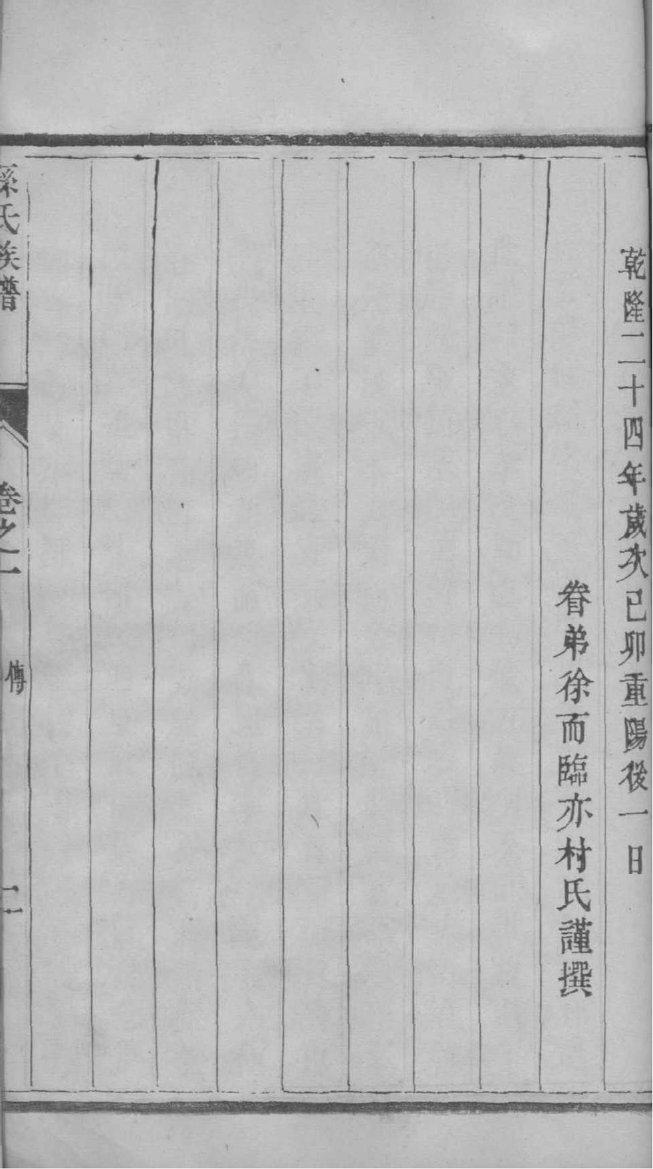 乾隆二十四年歲次己卯重陽後一日
眷弟徐而臨亦村氏謹撰
孫氏族譜
卷之一
傳
二